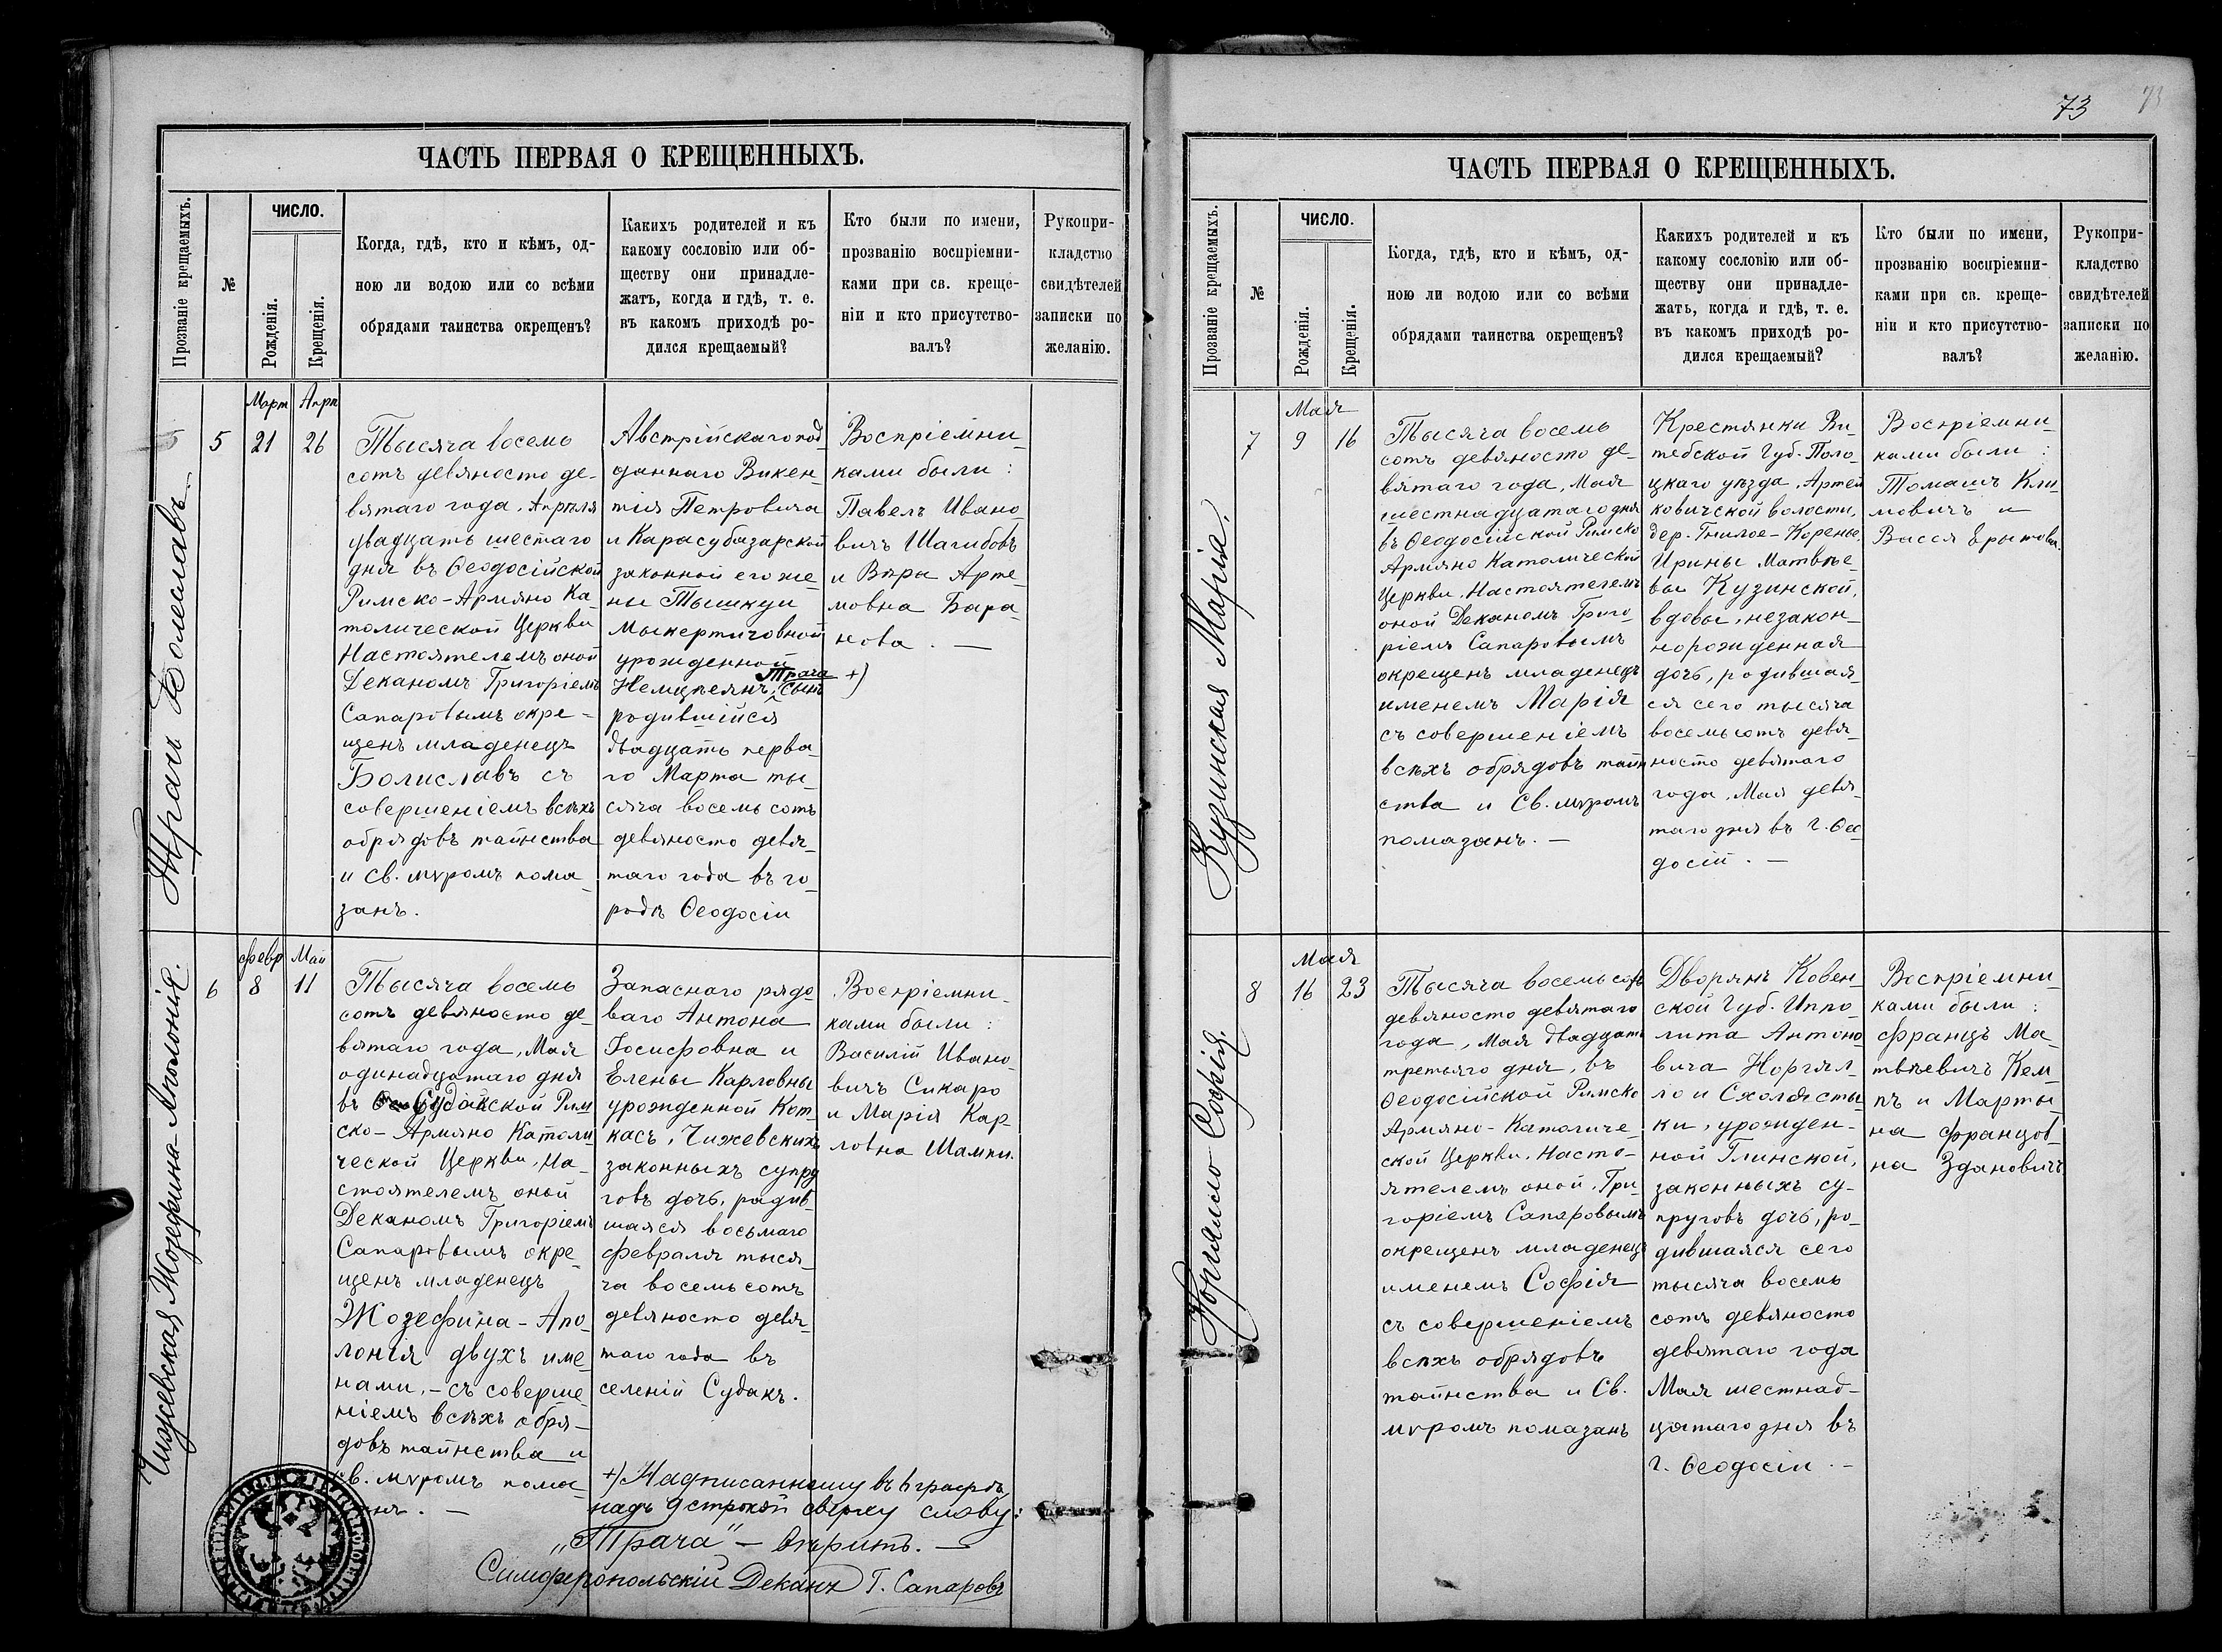 ЧАСТЬ ПЕРВАЯ О КРЕЩЕННЫХЪ.
Прозваніе крещаемыхъ.
№
ЧИСЛО.
Рожденія.
Крещенія.
Когда, гдѣ, кто и кѣмъ, од-
ною ли водою или со всѣми
обрядами таинства окрещенъ?
Какихъ родителей и къ
какому сословію или об-
ществу они принадле-
жатъ, когда и гдѣ, т. е.
въ какомъ приходѣ ро-
дился крещаемый?
Кто были по имени,
прозванію воспріемни-
ками при св. креще-
ніи и кто присутство-
валъ?
Рукопри-
кладство
свидѣтелей
записки по
желанію.
Трачъ Болеславъ.
5
5
Март
21
Апрл
26
Тысяча восемь
сотъ девяносто де-
вятаго года, Апрѣля
двадцать шестаго
дня въ Ѳеодосійской
Римско-Армяно Ка-
толической Церкви
Настоятелемъ оной
Деканомъ Григоріемъ
Сапаровымъ окре-
щенъ младенецъ
Болиславъ съ
совершеніемъ всѣхъ
обрядовъ таинства
и св. мѵромъ пома
занъ.
Австрійскаго под
даннаго Викен-
тія Петровича
и Карасубазарской
законной его же-
ны Тышкуи
Мыкертичовной
урожденной
Трача
Немцпеянъ, сынъ
родившійся
двадцать перва-
го Марта ты-
сяча восемь сотъ
девяносто девя-
таго года въ го-
родѣ Ѳеодосіи
Воспріемни-
ками были:
Павелъ Ивано-
вичъ Шагибовъ
и Вѣры Арте-
мовна Бара
нова. —
+)
Чижевская Жозефина-Аполонія.
6
февр
8
Май
11
Тысяча восемь
сотъ девяносто де-
вятаго года, Мая
одинадцатаго дня
въ Судакской Рим
ско-Армяно Католи
ческой Церкви, На-
стоятелемъ оной
Деканомъ Григоріемъ
Сапаровымъ окре-
щенъ младенецъ
Жозефина-Апо-
лонія двухъ име-
нами, – съ соверше
ніемъ всѣхъ обря-
довъ таинства и
св. мѵромъ пома
Запаснаго рядо
ваго Антона
Іосифовна и
Елены Карловны
урожденной Кот-
касъ, Чижевскихъ
законныхъ супру
говъ дочь, родив-
шаяся восьмаго
февраля тыся-
ча восемьсотъ
девяносто девя-
таго года въ
селеній Судакъ.
Воспріемни-
ками были:
Василій Ивано-
вичъ Сикаро
и Марія Кар-
ловна Шампи.
+) Надписанному въ 6 графѣ,
надъ 9 строкой сверху слову:
„Трача" – вѣрить. –
Симферопольскій Деканъ Г. Сапаровъ
73
73
ЧАСТЬ ПЕРВАЯ О КРЕЩЕННЫХЪ.
Прозваніе крещаемыхъ.
№
ЧИСЛО.
Рожденія.
Крещенія.
Когда, гдѣ, кто и кѣмъ, од-
ною ли водою или со всѣми
обрядами таинства окрещенъ?
Какихъ родителей и къ
какому сословію или об-
ществу они принадле-
жатъ, когда и гдѣ, т. е.
въ какомъ приходѣ ро-
дился крещаемый?
Кто были по имени,
прозванію воспріемни-
ками при св. креще-
ніи и кто присутство-
валъ?
Рукопри-
кладство
свидѣтелей
записки по
желанію.
Кузинская Марія.
7
Мая
9
16
Тысяча восемь
сотъ девяносто де-
вятаго года, Мая
шестнадцатаго дня
въ Ѳеодосійской Римско
Армяно Католической
Церкви, Настоятелемъ
оной Деканомъ Григо
ріемъ Сапаровымъ
окрещенъ младенецъ
именемъ Марія
съ совершеніемъ
всѣхъ обрядовъ таин
ства и Св. мѵромъ
помазанъ. —
Крестянки Ви-
тебской Губ. Поло-
цкаго уѣзда, Артей
ковичской волости,
дер. Гнилое-Коренье,
Ирины Матвѣе-
вы Кузинской,
вдовы, незакон-
норожденная
дочь, родившая-
ся сего тысяча
восемьсотъ девя-
носто девятаго
года, Мая девя-
таго дня въ г. Ѳео
досіи. —
Воспріемни-
ками были:
Томашъ Кли-
мовичъ и
Васся Ерытова.
Норгялло Софія.
8
Мая
16
23
Тысяча восемьсотъ
девяносто девятаго
года, Мая двадцать
третьяго дня, въ
Ѳеодосійской Римско
Армяно-Католиче-
ской Церкви, Насто-
ятелемъ оной, Гри-
горіемъ Сапаровымъ
окрещенъ младенецъ
именемъ Софія
съ совершеніемъ
всѣхъ обрядовъ
таинства и Св.
мѵромъ помазанъ
Дворянъ Ковен-
ской Губ. Иппо-
лита Антоно-
вича Норгял-
ло и Схоласты-
ки, урожден-
ной Глинской,
законныхъ су-
пруговъ дочь, ро-
дившаяся сего
тысяча восемь
сотъ девяносто
девятаго года
Мая шестнад-
цатаго дня въ
г. Ѳеодосіи. –
Воспріемни-
ками были:
францъ Ма-
твѣевичъ Кем-
пъ и Марты-
на францов-
на Здановичъ